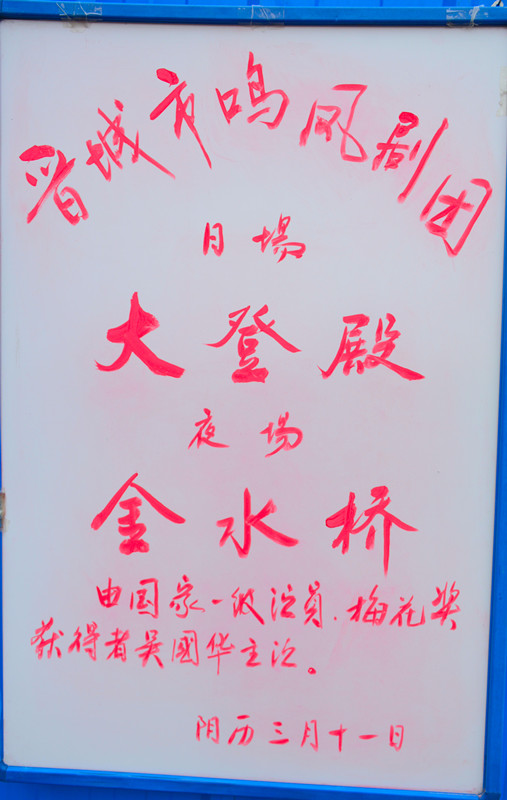 晋城市鸣凤剧团
日場
大登殿
夜场
金水桥
由国家一级演员.梅花奖
获得者吴國华主演。
阴历三月十一日